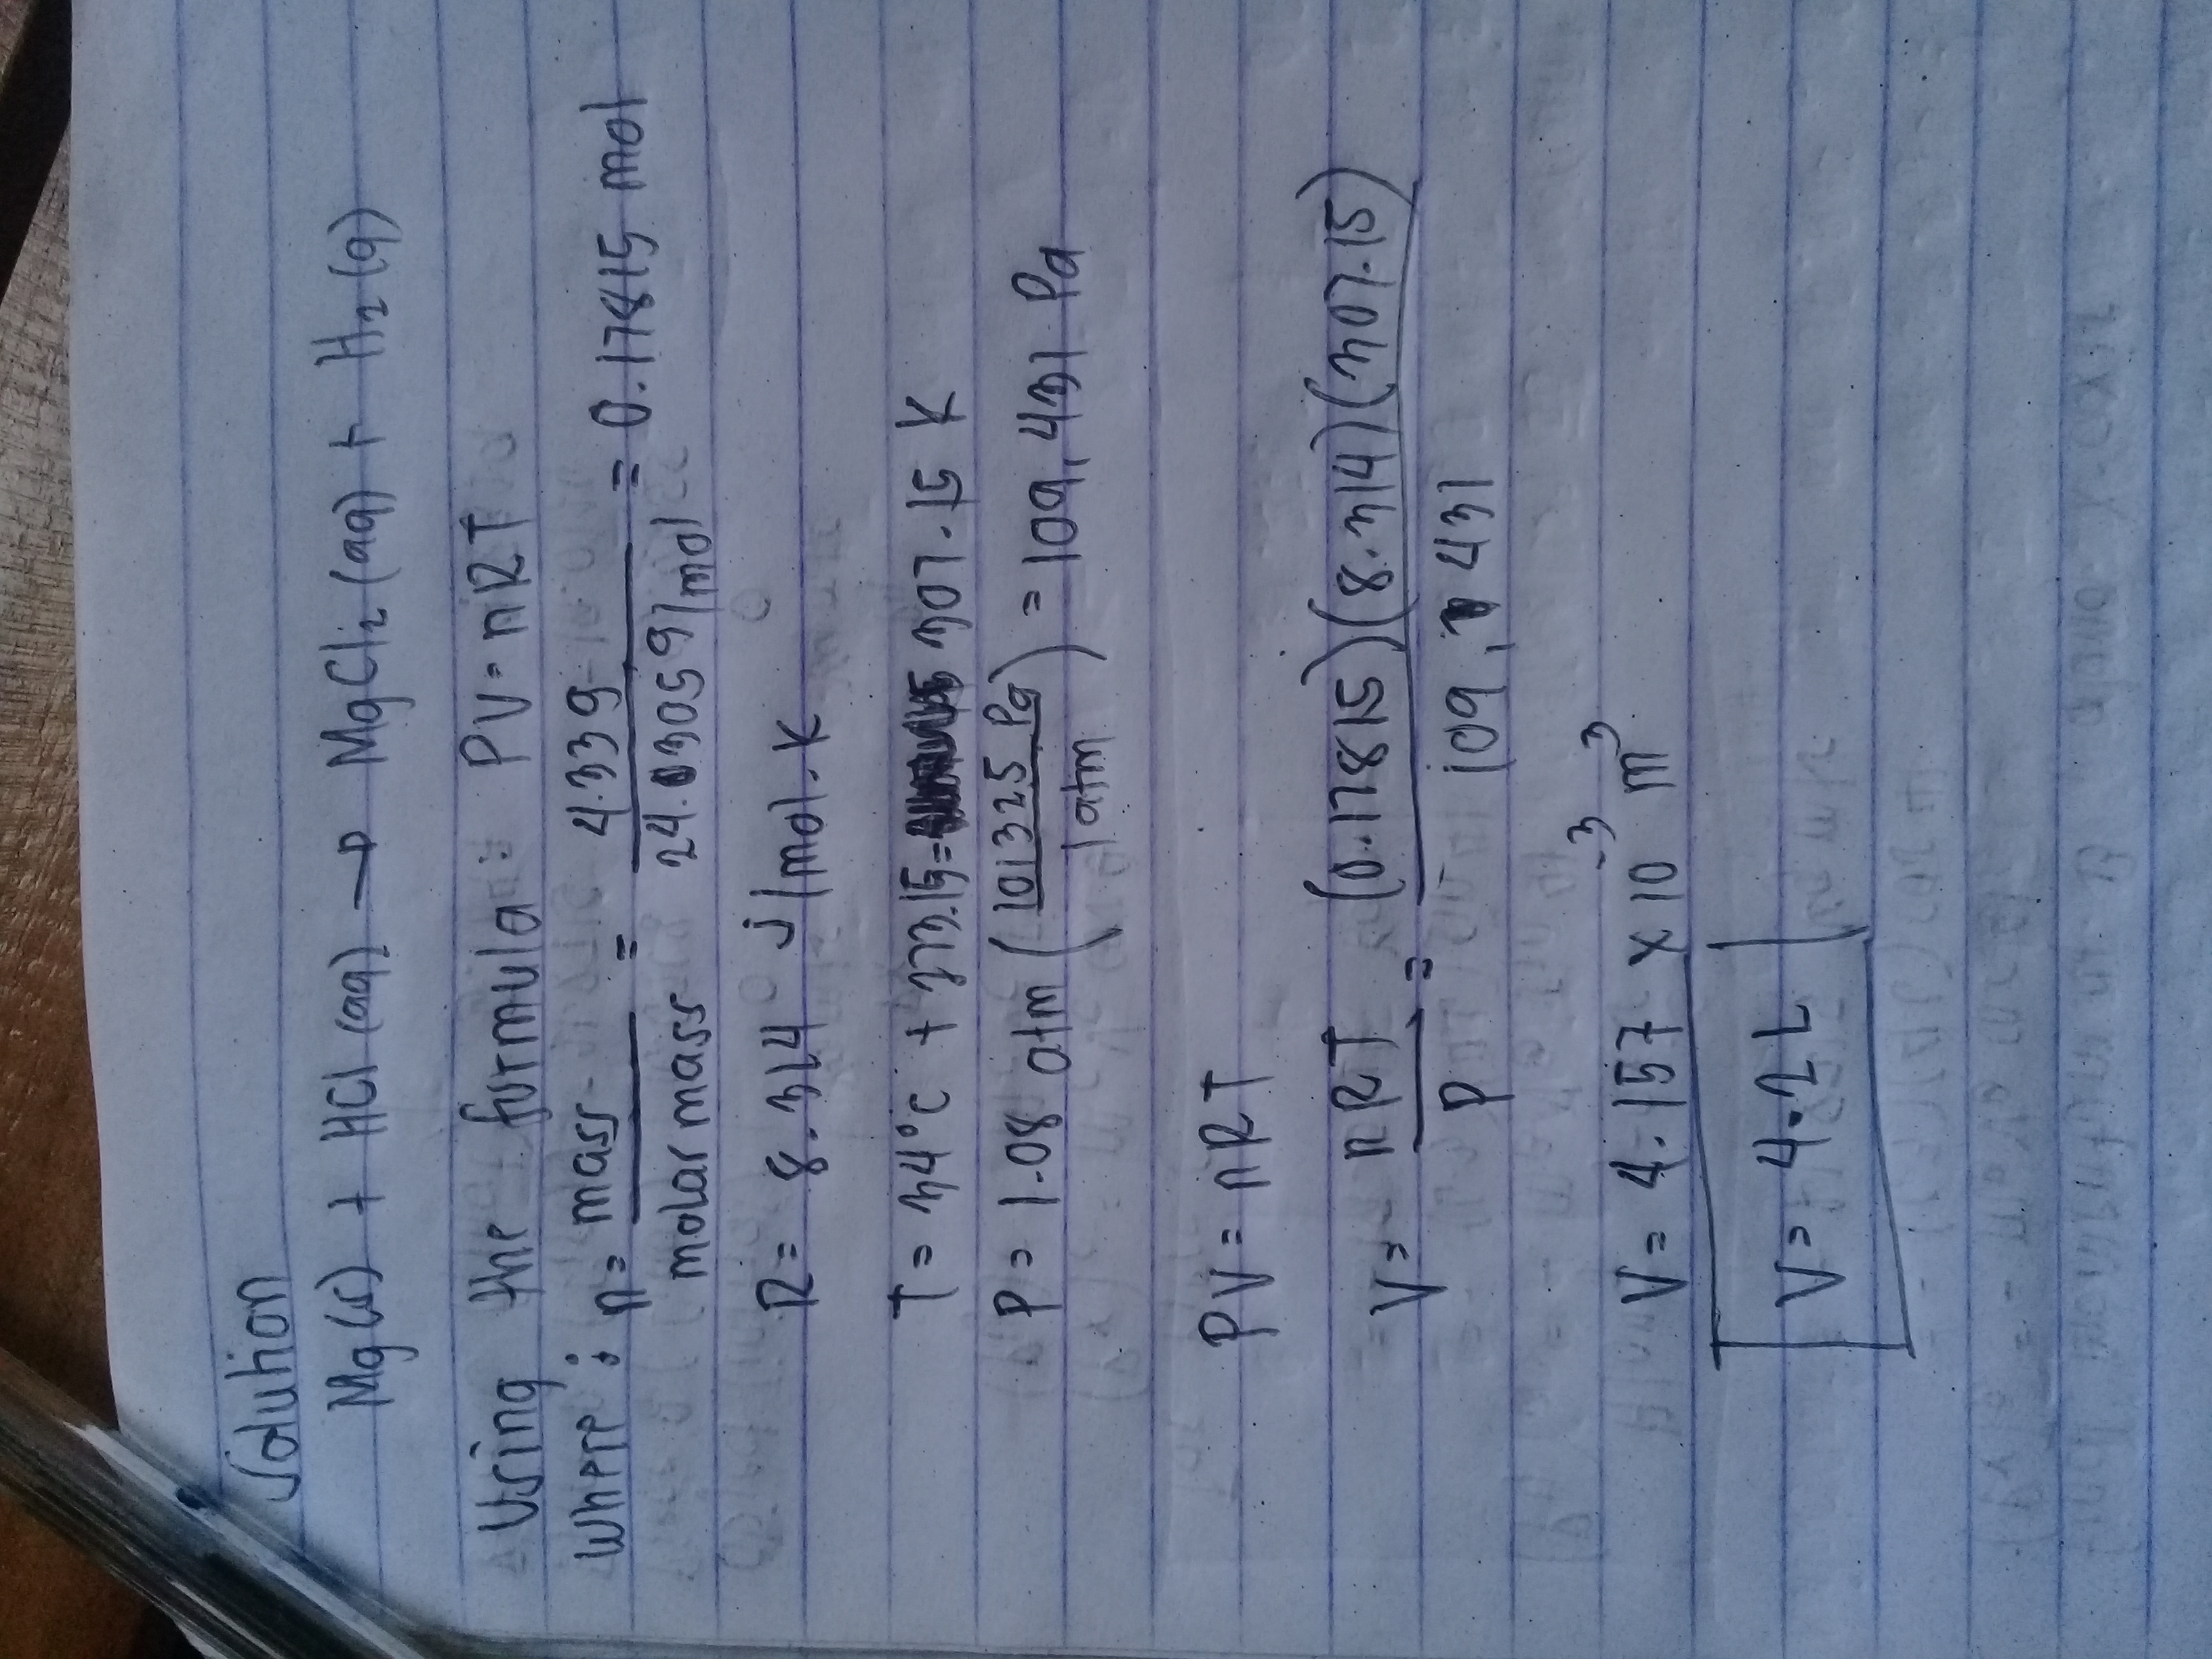 Solution
Mg(s) + HCl (aq) → MgCl₂ (aq) + H₂ (g)
Using the formula: PV = nRT
Where: n = mass / molar mass = 4.33g / 24.305g/mol = 0.17815 mol
R = 8.314 J/mol.K
T = 34°C + 273.15 = 307.15 K
P = 1.08 atm (101325 Pa / 1 atm) = 109,431 Pa
PV = nRT
V = nRT / P = (0.17815)(8.314)(307.15) / 109,431
V = 4.157 x 10⁻³ m³
V = 4.2L